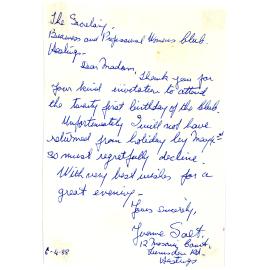 The Secretary,
Business and Professional Womens Club.
Hastings.
Dear Madam,
Thank you for
your kind invitation to attend
the twenty first birthday of the Club.
Unfortunately I will not have
returned from holiday by May
so must regretfully decline.
With very best wishes for a
great evening.
Yours sincerely,
Yvonne Salt.
12 Court,
Rd.
Hastings
-4-88